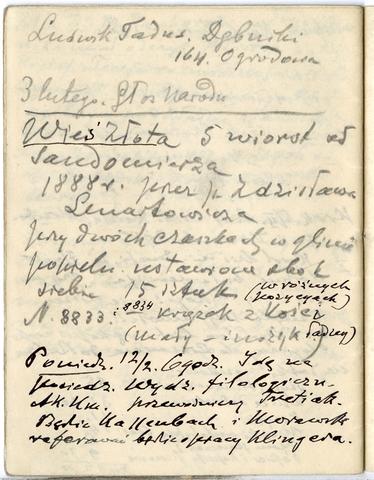 Tadus. Dębniki
164. Ogrodowa
3 lutego. Głos Narodu
Wieś Złota 5 wiorst od
Sandomierza
1888 r. przez p. Zdzisława
Lenartowicza
przy dwóch czaszkach w glinie
popieln. ustawione obok
siebie 15 sztuk (w różnych pozycyach)
N. 8833. : 8834 krążek z kości
(mały – i nożyk ładny)
Poniedz. 12/2. 6 godz. Idę na
posiedz. Wydz. filologiczn.
Ak. Um. przewodniczy Tretiak.
Będzie Kallenbach i Morawski
referować będzie pracę Klingera.